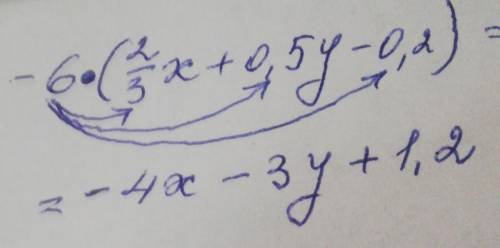 -6•(2/3x+0,5y-0,2)=
=-4x-3y+1,2